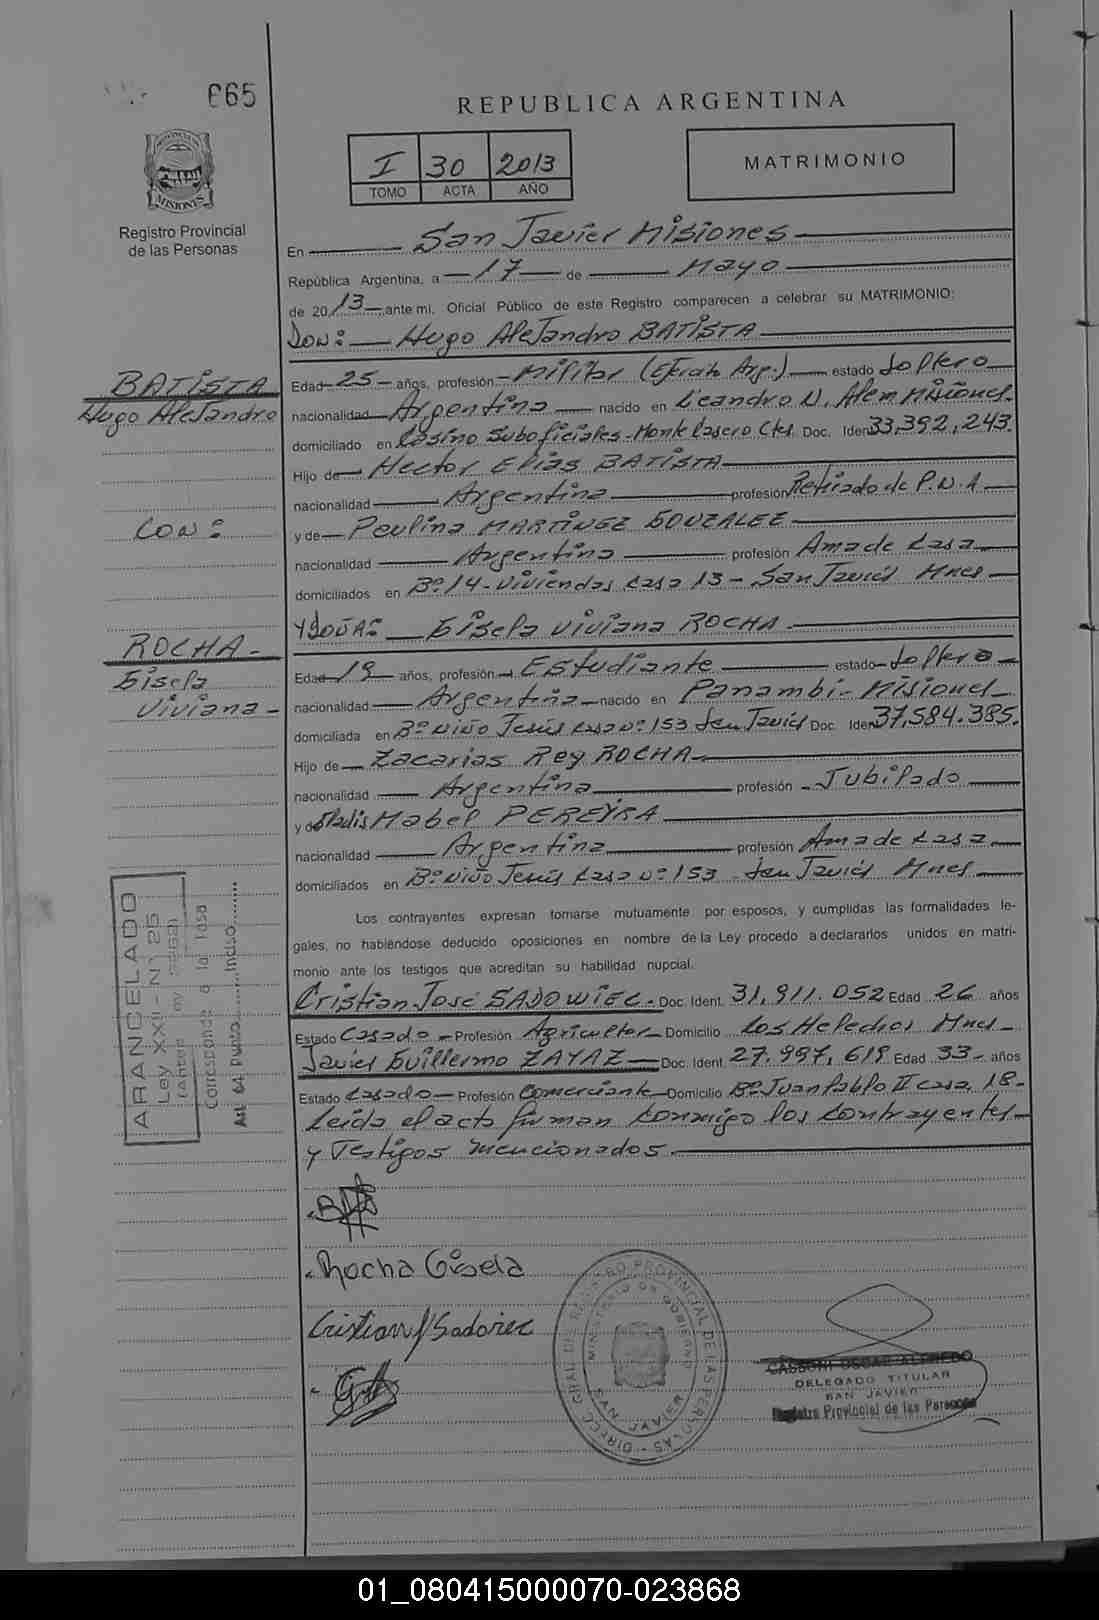 665
REPUBLICA ARGENTINA
I 30 2013
TOMO ACTA AÑO
MATRIMONIO
PROVINCIA DE MISIONES
Registro Provincial
de las Personas
En San Javier Misiones
República Argentina, a 17 de Mayo
de 2013 ante mi, Oficial Público de este Registro comparecen a celebrar su MATRIMONIO:
DON: Hugo Alejandro BATISTA
BATISTA
Hugo Alejandro
Edad 25 años, profesión Militar (Ejercito Arg.) estado Soltero
nacionalidad Argentina nacido en Leandro N. Alem Misiones.
domiciliado en Casino Suboficiales-Monte Casero Ctes. Doc. Iden 33.392.243.
Hijo de Hector Elias BATISTA
nacionalidad Argentina profesión Retirado de P.N.A
CON:
y de Paulina MARTINEZ GONZALEZ
nacionalidad Argentina profesión Ama de Casa
domiciliados en Bº 14-Viviendas Casa 13 - San Javier Mnes
Y DOÑA: Gisela Viviana ROCHA
ROCHA-
Gisela
Viviana-
Edad 19 años, profesión Estudiante estado Soltera
nacionalidad Argentina nacido en Panambi-Misiones
domiciliada en Bº Niño Jesús Casa Nº 153 San Javier Doc. Iden 37.584.385.
Hijo de Zacarias Rey ROCHA
nacionalidad Argentina profesión Jubilado
y de Gladis Mabel PEREYRA
nacionalidad Argentina profesión Ama de Casa
domiciliados en Bº Niño Jesús Casa Nº 153 San Javier Mnes
Los contrayentes expresan tomarse mutuamente por esposos, y cumplidas las formalidades le-
gales, no habiéndose deducido oposiciones en nombre de la Ley procedo a declararlos unidos en matri-
monio ante los testigos que acreditan su habilidad nupcial.
Cristian José SADOWIEC. Doc. Ident. 31.911.052 Edad 26 años
Estado Casado Profesión Agricultor Domicilio Los Helechos Mnes
Javier Guillermo ZAYAZ Doc. Ident. 27.997.619 Edad 33 años
Estado Casado Profesión Comerciante Domicilio Bº Juan Pablo II casa 18-
Leida el acta firman conmigo los contrayentes
y Testigos mencionados.
ARANCELADO
Ley XXII - Nº 25
Corresponde a la Tasa
Art. 64 Punto Inciso
Rocha Gisela
Cristian J Sadoviec
DIRECC GRAL DEL REGISTRO PROVINCIAL DE LAS PERSONAS
MINISTERIO DE GOBIERNO
SAN JAVIER
CASSONI OSCAR ALFREDO
DELEGADO TITULAR
SAN JAVIER
Registro Provincial de las Personas
01_080415000070-023868